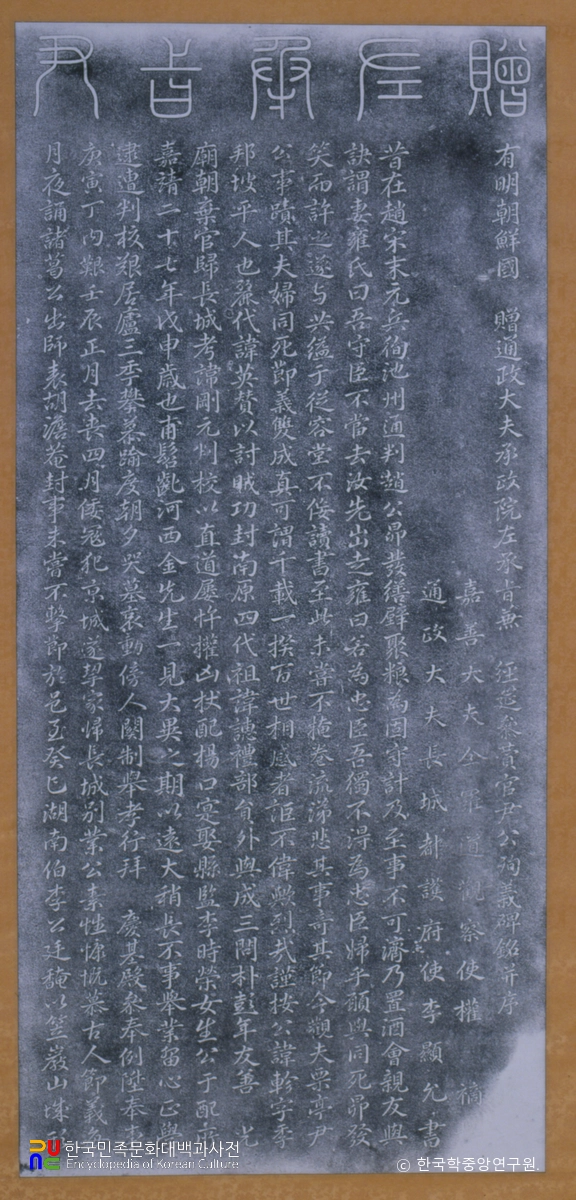 贈左承旨尹
有明朝鮮國 贈通政大夫承政院左承旨兼 經筵參賛官尹公殉義碑銘并序
嘉善大夫全羅道觀察使權 𥛚
通政大夫長城都護府使李顯允書
昔在趙宋末元兵徇池州通判趙公昴發繕壁聚粮為固守計及至事不可濟乃置酒會親友與
訣謂妻雍氏曰吾守臣不當去汝先出走雍曰君為忠臣吾獨不淂為忠臣婦乎願與同死昴發
笑而許之遂与共縊于從容堂不佞讀書至此未嘗不掩卷流涕悲其事奇其節今觀夫栗亭尹
公事蹟其夫婦同死節義雙成真可謂千載一揆百世相感者詎不偉歟烈㢤謹按公諱軫字季
邦坡平人也麗代諱英賛以討賊功封南原四代祖諱譓禮部貟外與成三問朴彭年友善 光
廟朝棄官歸長城考諱剛元 校以直道 忤權凶杖配楊口寔娶縣監李時榮女生公于配
嘉靖二十七年戊申歲也甫髫齔河西金先生一見大異之期以遠大稍長不事舉業留心正學
逮遭判校艱居廬三年攀慕踰度朝夕哭墓哀動傍人闋制舉孝行拜 慶基殿參奉例陞奉事
庚寅丁內艱壬辰正月去喪四月倭寇犯京城遂挈家帰長城別業公素性慷慨慕古人節義
月夜誦諸葛公出師表胡澹菴封事未嘗不擊節於邑至癸巳湖南伯李公廷馣以笠巖山城
한국민족문화대백과사전
Encyclopedia of Korean Culture
© 한국학중앙연구원.